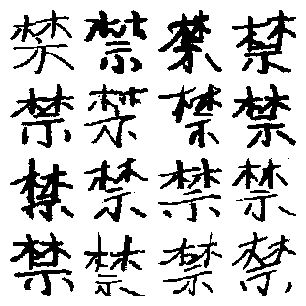 禁禁禁禁
禁禁禁禁
禁禁禁禁
禁禁禁禁